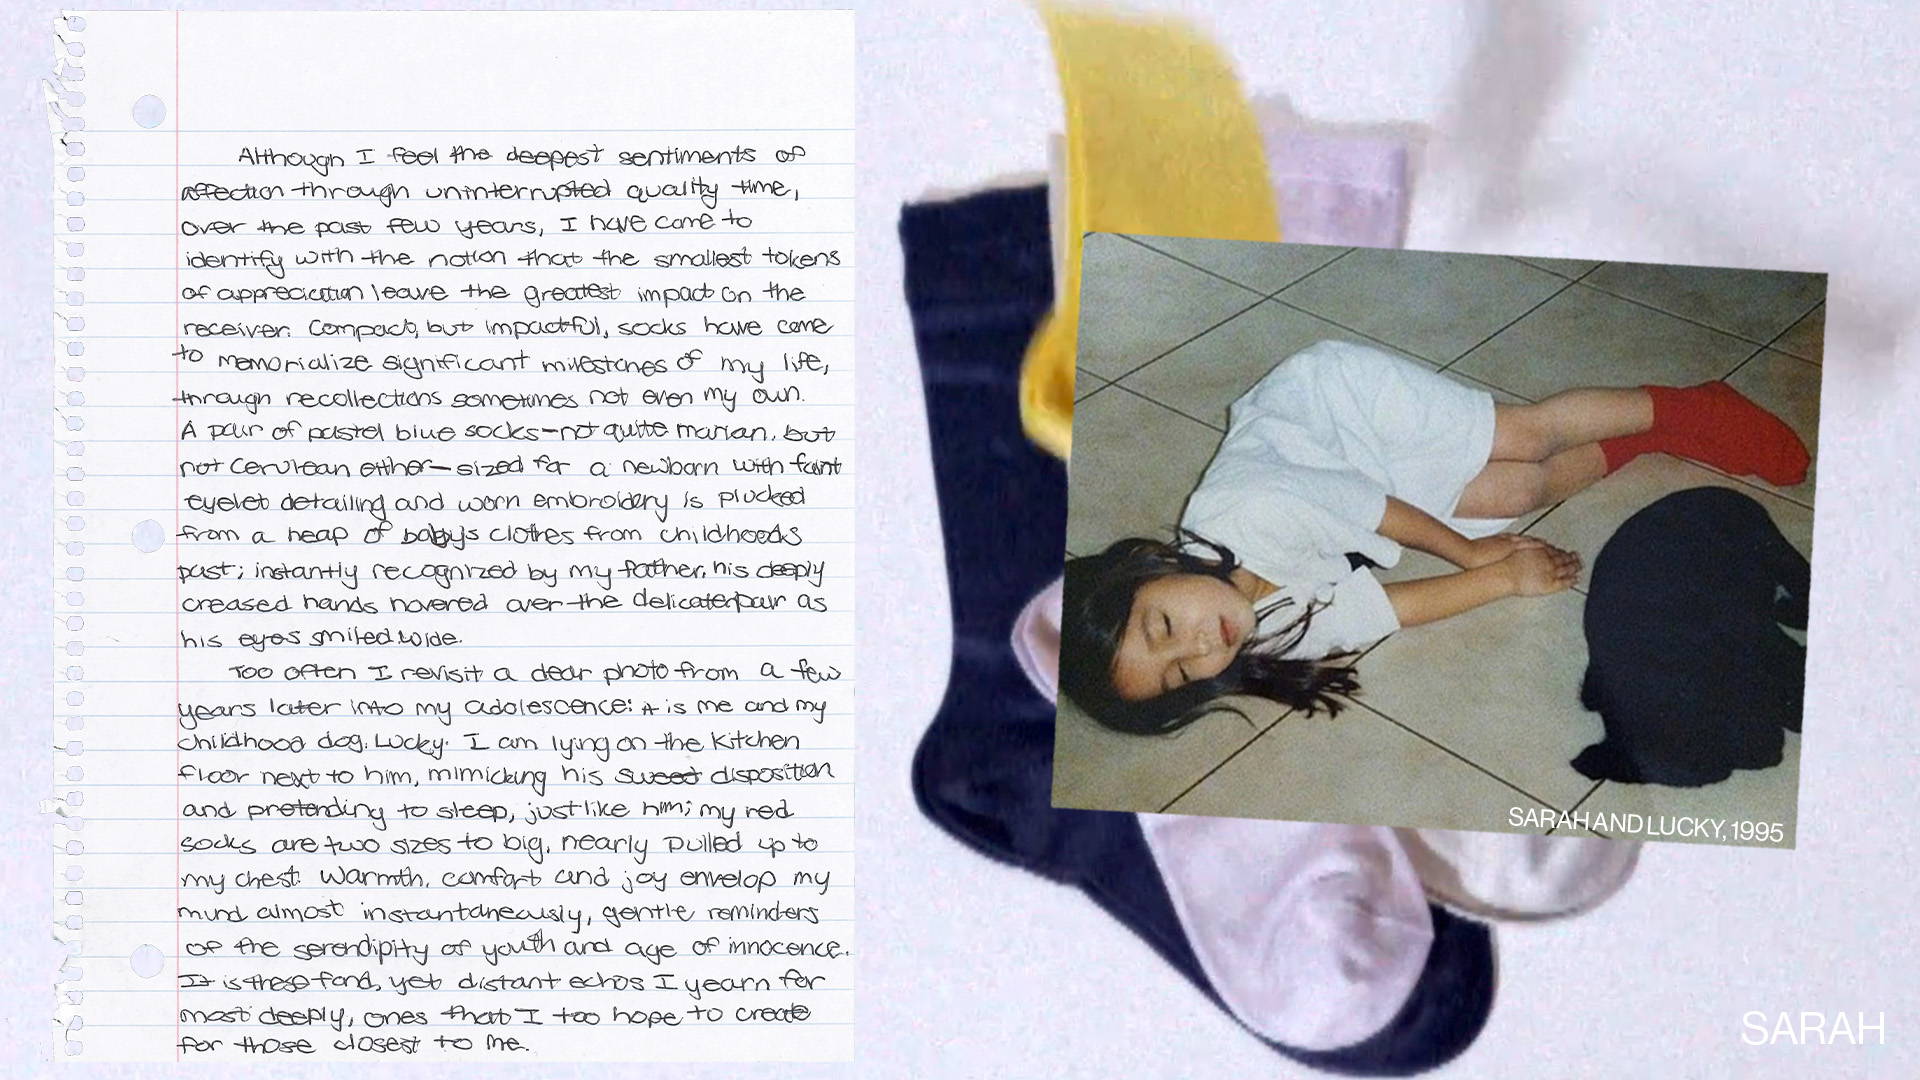 Although I feel the deepest sentiments of
affection through uninterrupted quality time,
over the past few years, I have come to
identify with the notion that the smallest tokens
of appreciation leave the greatest impact on the
receiver. Compact, but impactful, socks have come
to memorialize significant milestones of my life,
through recollections sometimes not even my own.
A pair of pastel blue socks—not quite marian, but
not cerulean either—sized for a newborn with faint
eyelet detailing and worn embroidery is plucked
from a heap of baby's clothes from childhoods
past; instantly recognized by my father, his deeply
creased hands hovered over the delicate pair as
his eyes smiled wide.
Too often I revisit a dear photo from a few
years later into my adolescence: it is me and my
childhood dog, Lucky. I am lying on the kitchen
floor next to him, mimicking his sweet disposition
and pretending to sleep, just like him; my red
socks are two sizes to big, nearly pulled up to
my chest. Warmth, comfort and joy envelop my
mind almost instantaneously, gentle reminders
of the serendipity of youth and age of innocence.
It is these fond, yet distant echos I yearn for
most deeply, ones that I too hope to create
for those closest to me.
SARAH AND LUCKY, 1995
SARAH